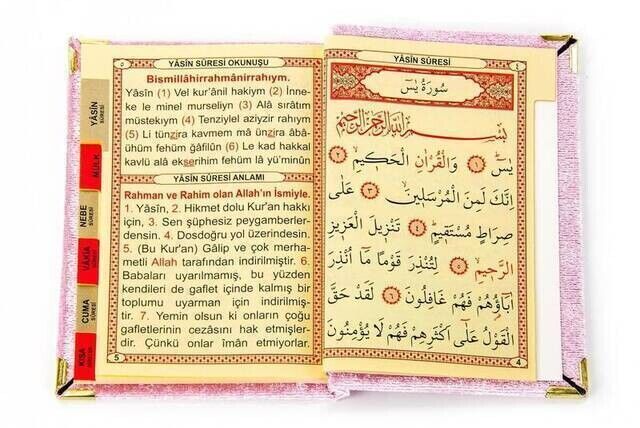 YÂSİN SÛRESİ
٤
سُورَةُ يٰسٓ
بِسْمِ اللّٰهِ الرَّحْمٰنِ الرَّحِيمِ
يٰسٓ ۝١ وَالْقُرْاٰنِ الْحَكِيمِ ۝٢
اِنَّكَ لَمِنَ الْمُرْسَلِينَ ۝٣ عَلٰى
صِرَاطٍ مُسْتَقِيمٍ ۝٤ تَنْزِيلَ الْعَزِيزِ
الرَّحِيمِ ۝٥ لِتُنْذِرَ قَوْمًا مَٓا اُنْذِرَ
اٰبَٓاؤُهُمْ فَهُمْ غَافِلُونَ ۝٦ لَقَدْ حَقَّ
الْقَوْلُ عَلٰٓى اَكْثَرِهِمْ فَهُمْ لَا يُؤْمِنُونَ
4
٥
YÂSİN SÛRESİ OKUNUŞU
Bismillâhirrahmânirrahıym.
Yâsîn (1) Vel kur'ânil hakiym (2) İnne-
ke le minel murseliyn (3) Alâ sırâtım
müstekıym (4) Tenziylel aziyzir rahıym
(5) Li tünzira kavmem mâ ünzira âbâ-
ühüm fehüm gâfilûn (6) Le kad hakkal
kavlü alâ ekserihim fehüm lâ yü'minûn
YÂSİN SÛRESİ ANLAMI
Rahman ve Rahim olan Allah'ın İsmiyle.
1. Yâsîn, 2. Hikmet dolu Kur'an hakkı
için, 3. Sen şüphesiz peygamberler-
densin. 4. Dosdoğru yol üzerindesin.
5. (Bu Kur'an) Gâlip ve çok merha-
metli Allah tarafından indirilmiştir. 6.
Babaları uyarılmamış, bu yüzden
kendileri de gaflet içinde kalmış bir
toplumu uyarman için indirilmiş-
tir. 7. Yemin olsun ki onların çoğu
gafletlerinin cezâsını hak etmişler-
dir. Çünkü onlar îmân etmiyorlar.
5
YÂSİN
SÛRESİ
MÜLK
NEBE
SÛRESİ
VÂKIA
SÛRESİ
CUMA
SÛRESİ
KISA